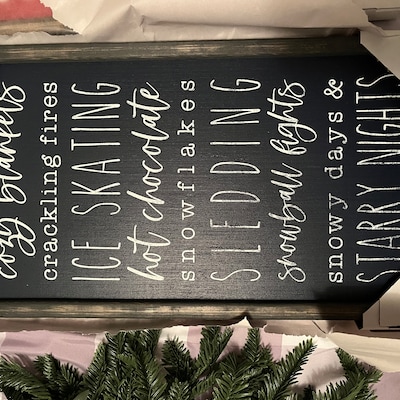 cozy blankets
crackling fires
ICE SKATING
hot chocolate
snowflakes
SLEDDING
snowball fights
snowy days &
STARRY NIGHTS